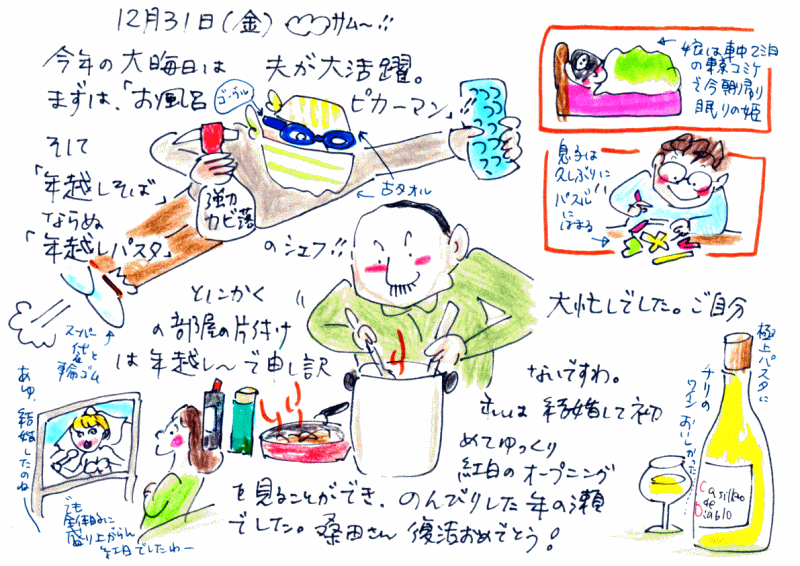 12月31日(金) サム〜!!
今年の大晦日は 夫が大活躍。
まずは、「お風呂 ピカーマン」!!
ゴーグル
そして
「年越しそば」
ならぬ
「年越しパスタ」 のシェフ!!
強力
カビ落
古タオル
スーパー
袋と
輪ゴム
娘は車中2泊
の東京コミケ
で今朝帰り
眠りの姫
息子は
久しぶりに
パズル
にはまる
大忙しでした。ご自分
とにかく
の部屋の片付け
は年越し〜で申し訳
ないですわ。
結婚して初
めてゆっくり
紅白のオープニング
を見ることができ、のんびりした年の瀬
でした。桑田さん 復活おめでとう!
あゆ、結婚したのね
でも
全体的に
盛り上がらん
紅白でしたわー
極上パスタに
チリの
ワイン おいしかった
Casillero
del
Diablo